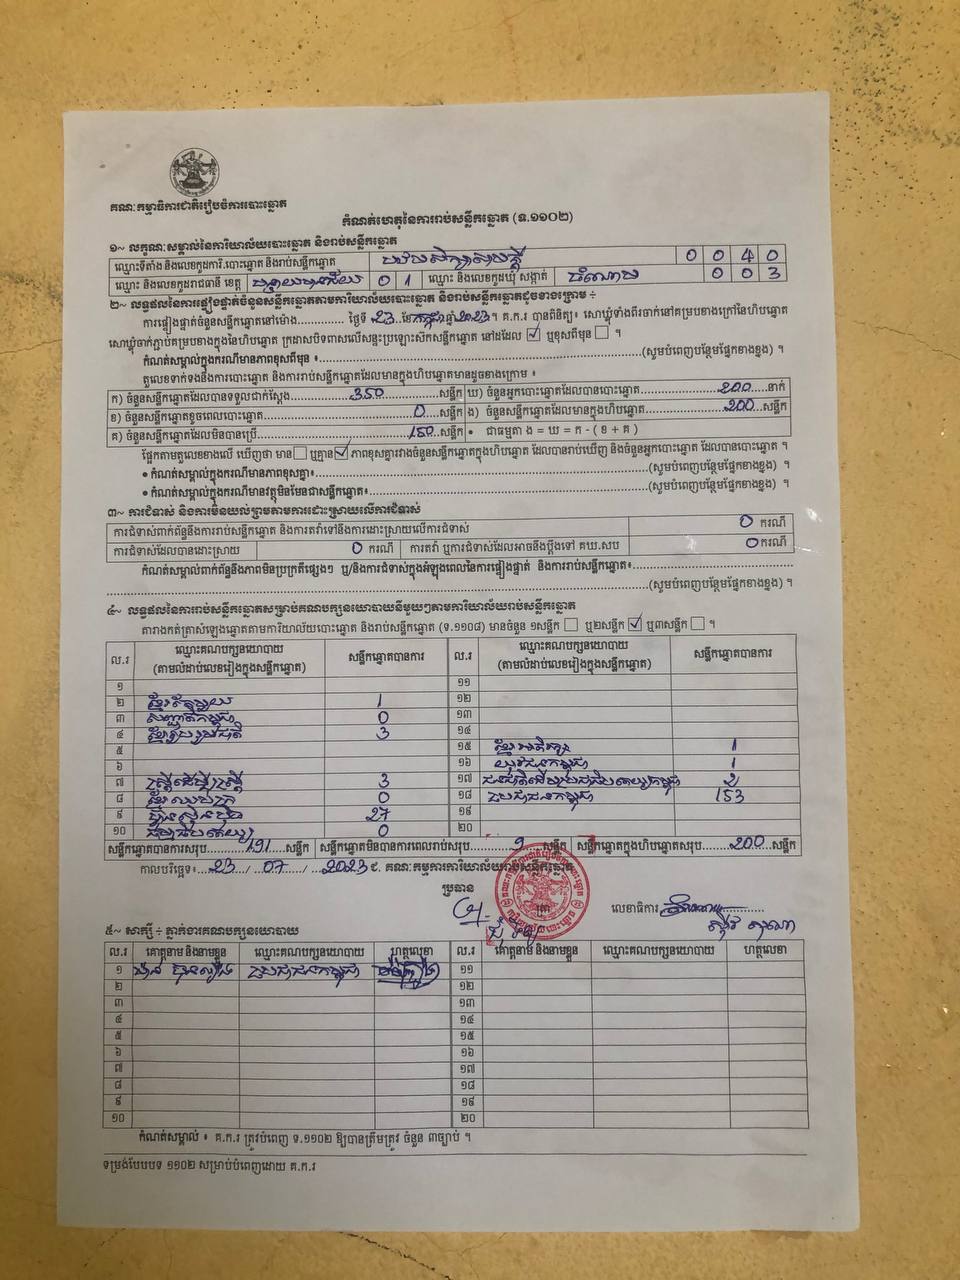 គណៈកម្មាធិការជាតិរៀបចំការបោះឆ្នោត
កំណត់ហេតុនៃការរាប់សន្លឹកឆ្នោត (ទ.១១០២)
១~ លក្ខណៈសម្គាល់នៃការិយាល័យបោះឆ្នោត និងរាប់សន្លឹកឆ្នោត
ឈ្មោះទីតាំង និងលេខកូដការិ.បោះឆ្នោត និងរាប់សន្លឹកឆ្នោត 0 0 4 0
ឈ្មោះ និងលេខកូដរាជធានី ខេត្ត បន្ទាយមានជ័យ 0 1 ឈ្មោះ និងលេខកូដឃុំ សង្កាត់ 0 0 3
២~ លទ្ធផលនៃការផ្ទៀងផ្ទាត់ចំនួនសន្លឹកឆ្នោតតាមការិយាល័យបោះឆ្នោត និងរាប់សន្លឹកឆ្នោតដូចខាងក្រោម ÷
ការផ្ទៀងផ្ទាត់ចំនួនសន្លឹកឆ្នោតនៅម៉ោង.............. ថ្ងៃទី 23 ខែ កក្កដា ឆ្នាំ 2023 ។ គ.ក.រ បានពិនិត្យ៖ សោឃ្លុំទាំងពីរចាក់នៅគម្របខាងក្រៅនៃហិបឆ្នោត
សោឃ្លុំចាក់ភ្ជាប់គម្របខាងក្នុងនៃហិបឆ្នោត ក្រដាសបិទពាសលើសន្ទះប្រឡោះស៊កសន្លឹកឆ្នោត នៅដដែល ✓ ឬខុសពីមុន ។
កំណត់សម្គាល់ក្នុងករណីមានភាពខុសពីមុន ៖ (សូមបំពេញបន្ថែមផ្នែកខាងខ្នង) ។
តួលេខទាក់ទងនឹងការបោះឆ្នោត និងការរាប់សន្លឹកឆ្នោតដែលមានក្នុងហិបឆ្នោតមានដូចខាងក្រោម ៖
ក) ចំនួនសន្លឹកឆ្នោតដែលបានទទួលជាក់ស្តែង 350 សន្លឹក ឃ) ចំនួនអ្នកបោះឆ្នោតដែលបានបោះឆ្នោត 200 នាក់
ខ) ចំនួនសន្លឹកឆ្នោតខូចពេលបោះឆ្នោត 0 សន្លឹក ង) ចំនួនសន្លឹកឆ្នោតដែលមានក្នុងហិបឆ្នោត 200 សន្លឹក
គ) ចំនួនសន្លឹកឆ្នោតដែលមិនបានប្រើ 150 សន្លឹក • ជាធម្មតា ង = ឃ = ក - ( ខ + គ )
ផ្អែកតាមតួលេខខាងលើ ឃើញថា មាន ឬគ្មាន ✓ ភាពខុសគ្នារវាងចំនួនសន្លឹកឆ្នោតក្នុងហិបឆ្នោត ដែលបានរាប់ឃើញ និងចំនួនអ្នកបោះឆ្នោត ដែលបានបោះឆ្នោត ។
• កំណត់សម្គាល់ក្នុងករណីមានភាពខុសគ្នា៖ (សូមបំពេញបន្ថែមផ្នែកខាងខ្នង) ។
• កំណត់សម្គាល់ក្នុងករណីមានវត្ថុមិនមែនជាសន្លឹកឆ្នោត៖ (សូមបំពេញបន្ថែមផ្នែកខាងខ្នង) ។
៣~ ការជំទាស់ និងការមិនយល់ព្រមតាមការដោះស្រាយលើការជំទាស់
ការជំទាស់ពាក់ព័ន្ធនឹងការរាប់សន្លឹកឆ្នោត និងការតវ៉ាទៅនឹងការដោះស្រាយលើការជំទាស់ 0 ករណី
ការជំទាស់ដែលបានដោះស្រាយ 0 ករណី ការតវ៉ា ឬការជំទាស់ដែលអាចនឹងប្តឹងទៅ គឃ.សប 0 ករណី
កំណត់សម្គាល់ពាក់ព័ន្ធនឹងភាពមិនប្រក្រតីផ្សេងៗ ឬ/និងការជំទាស់ក្នុងអំឡុងពេលនៃការផ្ទៀងផ្ទាត់ និងការរាប់សន្លឹកឆ្នោត៖
(សូមបំពេញបន្ថែមផ្នែកខាងខ្នង) ។
៤~ លទ្ធផលនៃការរាប់សន្លឹកឆ្នោតសម្រាប់គណបក្សនយោបាយនីមួយៗតាមការិយាល័យរាប់សន្លឹកឆ្នោត
តារាងកត់ត្រាសំឡេងឆ្នោតតាមការិយាល័យបោះឆ្នោត និងរាប់សន្លឹកឆ្នោត (ទ.១១០៨) មានចំនួន ១សន្លឹក ឬ២សន្លឹក ✓ ឬ៣សន្លឹក ។
ល.រ ឈ្មោះគណបក្សនយោបាយ (តាមលំដាប់លេខរៀងក្នុងសន្លឹកឆ្នោត) សន្លឹកឆ្នោតបានការ ល.រ ឈ្មោះគណបក្សនយោបាយ (តាមលំដាប់លេខរៀងក្នុងសន្លឹកឆ្នោត) សន្លឹកឆ្នោតបានការ
១ ១១
២ 1 ១២
៣ សញ្ជាតិកម្ពុជា 0 ១៣
៤ ខ្មែររួបរួមជាតិ 3 ១៤
៥ ១៥ ខ្មែរអភិរក្ស 1
៦ ១៦ យុវជនកម្ពុជា 1
៧ ស្ត្រីដើម្បីស្ត្រី 3 ១៧ 2
៨ 0 ១៨ ប្រជាជនកម្ពុជា 153
៩ ហ្វ៊ុនស៊ិនប៉ិច 27 ១៩
១០ 0 ២០
សន្លឹកឆ្នោតបានការសរុប 191 សន្លឹក សន្លឹកឆ្នោតមិនបានការពេលរាប់សរុប 9 សន្លឹក សន្លឹកឆ្នោតក្នុងហិបឆ្នោតសរុប 200 សន្លឹក
កាលបរិច្ឆេទ៖ 23 / 07 / 2023 ជ. គណៈកម្មការការិយាល័យរាប់សន្លឹកឆ្នោត
ប្រធាន
លេខាធិការ
៥~ សាក្សី ÷ ភ្នាក់ងារគណបក្សនយោបាយ
ល.រ គោត្តនាម និងនាមខ្លួន ឈ្មោះគណបក្សនយោបាយ ហត្ថលេខា ល.រ គោត្តនាម និងនាមខ្លួន ឈ្មោះគណបក្សនយោបាយ ហត្ថលេខា
១ ប្រជាជនកម្ពុជា ១១
២ ១២
៣ ១៣
៤ ១៤
៥ ១៥
៦ ១៦
៧ ១៧
៨ ១៨
៩ ១៩
១០ ២០
កំណត់សម្គាល់ ៖ គ.ក.រ ត្រូវបំពេញ ទ.១១០២ ឱ្យបានត្រឹមត្រូវ ចំនួន ៣ច្បាប់ ។
ទម្រង់បែបបទ ១១០២ សម្រាប់បំពេញដោយ គ.ក.រ